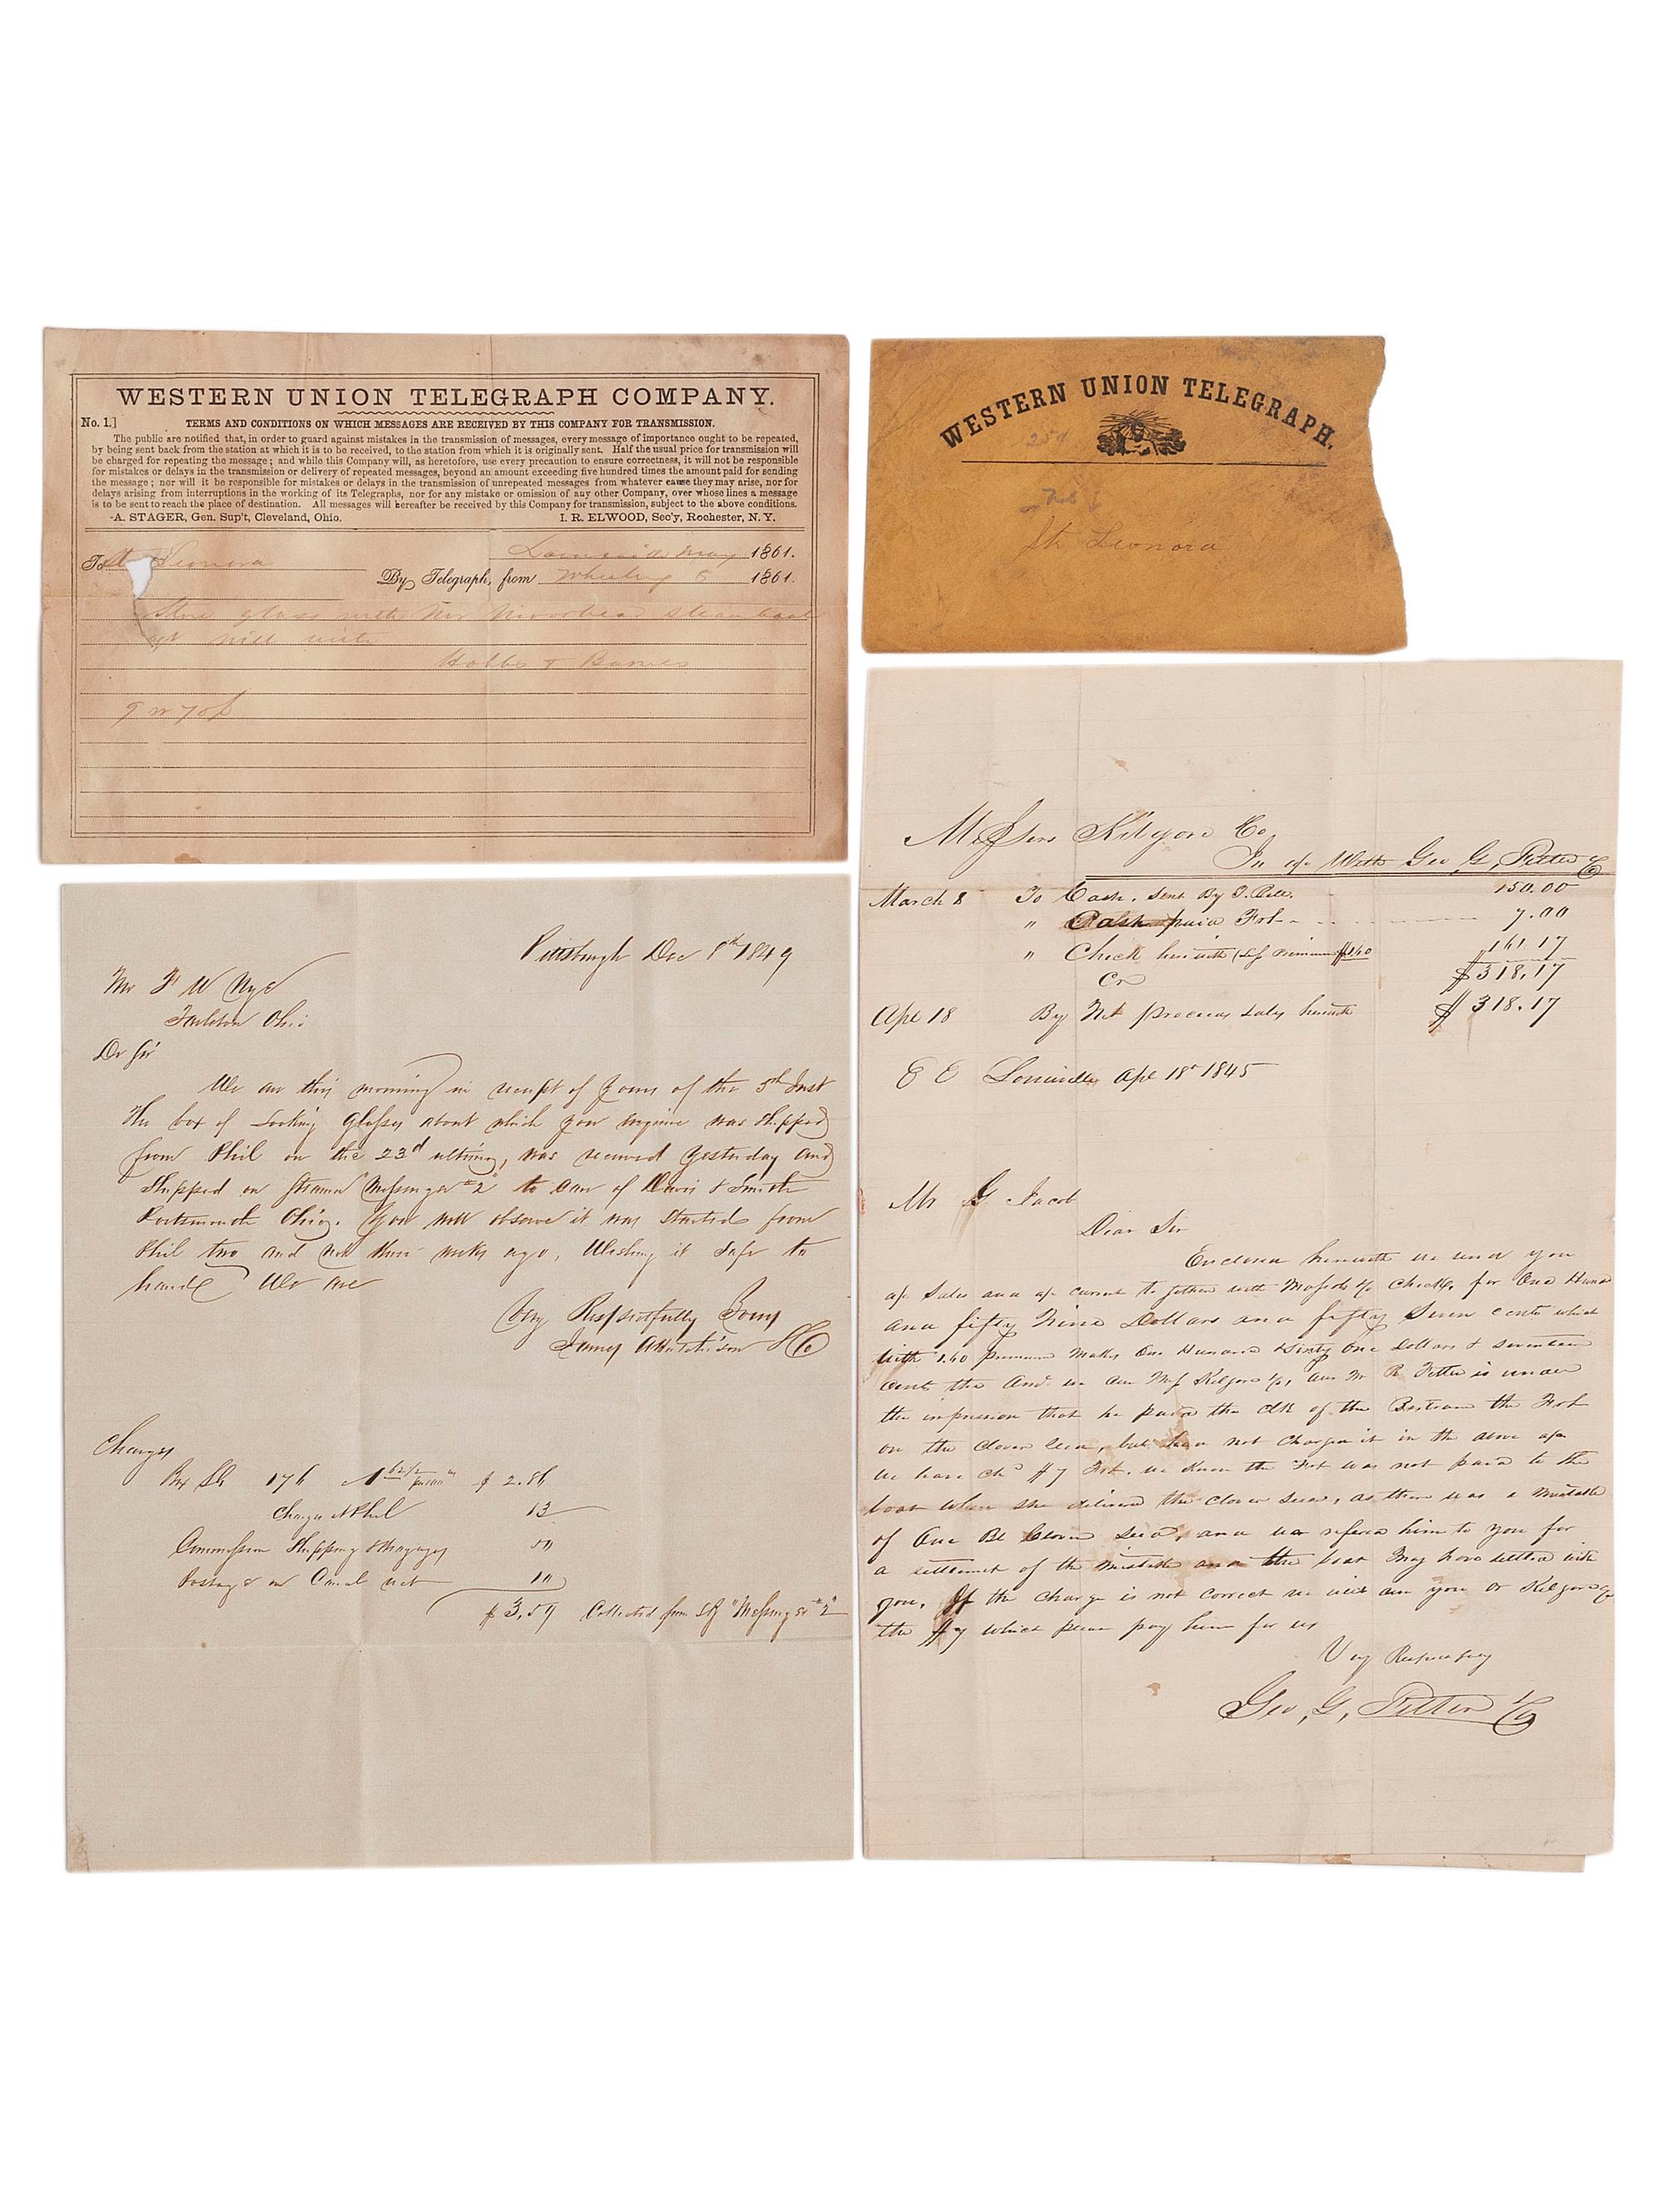 WESTERN UNION TELEGRAPH COMPANY.
No. 1.]
TERMS AND CONDITIONS ON WHICH MESSAGES ARE RECEIVED BY THIS COMPANY FOR TRANSMISSION.
The public are notified that, in order to guard against mistakes in the transmission of messages, every message of importance ought to be repeated,
by being sent back from the station at which it is to be received, to the station from which it is originally sent. Half the usual price for transmission will
be charged for repeating the message; and while this Company will, as heretofore, use every precaution to ensure correctness, it will not be responsible
for mistakes or delays in the transmission or delivery of repeated messages, beyond an amount exceeding five hundred times the amount paid for sending
the message; nor will it be responsible for mistakes or delays in the transmission of unrepeated messages from whatever cause they may arise, nor for
delays arising from interruptions in the working of its Telegraphs, nor for any mistake or omission of any other Company, over whose lines a message
is to be sent to reach the place of destination. All messages will hereafter be received by this Company for transmission, subject to the above conditions.
A. STAGER, Gen. Sup't, Cleveland, Ohio.
I. R. ELWOOD, Sec'y, Rochester, N. Y.
May 1861.
To Str Leonora
By Telegraph, from Wheeling 5 1861.
Store glass with Mr Moorhead steam boat
Hobbs & Barnes
WESTERN UNION TELEGRAPH.
Str Leonora
Pittsburgh Dec 8th 1849
Mr F W Nye
Tarlton Ohio
Dr Sir
We are this morning in receipt of yours of the 5th Inst
The box of Looking Glasses about which you enquire was shipped
from Phil on the 23d ultimo, was received yesterday and
Shipped on Steamer Messenger #2 to care of Davis & Smith
Portsmouth Ohio. You will observe it was started from
Phil two and not three weeks ago, Wishing it safe to
hand We are
Very Respectfully Yours
James A Hutchison & Co
Charges
Bx LG 176 $ 2.86
Charges at Phil 13
Commission Shipping
Postage on Canal 10
$ 3,59 Collected from SB "Messenger #2"
Messers Kilgore Co,
In a/c With Geo, G, Fetter Co
March 8 To Cash. Sent By 150.00
" Cash paid Frt 7.00
" Check herewith (Less Premium $1.60 161 17
$318.17
Cr
Apl 18 By Net proceeds sales herewith $318.17
E E Louisville Apl 18th 1845
Mr G Jacob
Dear Sir
Enclosed herewith we send you
a/c Sales and a/c current together with checks, for One Hund
and fifty Nine Dollars and fifty Seven cents which
with 1.60 premium Makes One Hundred Sixty One Dollars & seventeen
cents the Amt we due Kilgore Co, our Mr R Fetter is under
the impression that he paid the Clk of the Bertrand the Frt
on the Clover seed, but have not charged it in the above a/c
we have chd $7 Frt. we know the Frt was not paid to the
boat when she delivered the clover seed, as there was a Mistake
of One Bl Clover seed, and we referred him to you for
a settlement of the mistake and the boat May have settled with
you. If the charge is not correct we will owe you or Kilgore Co
the $7 which please pay him for us
Very Respectfully
Geo, G, Fetter Co